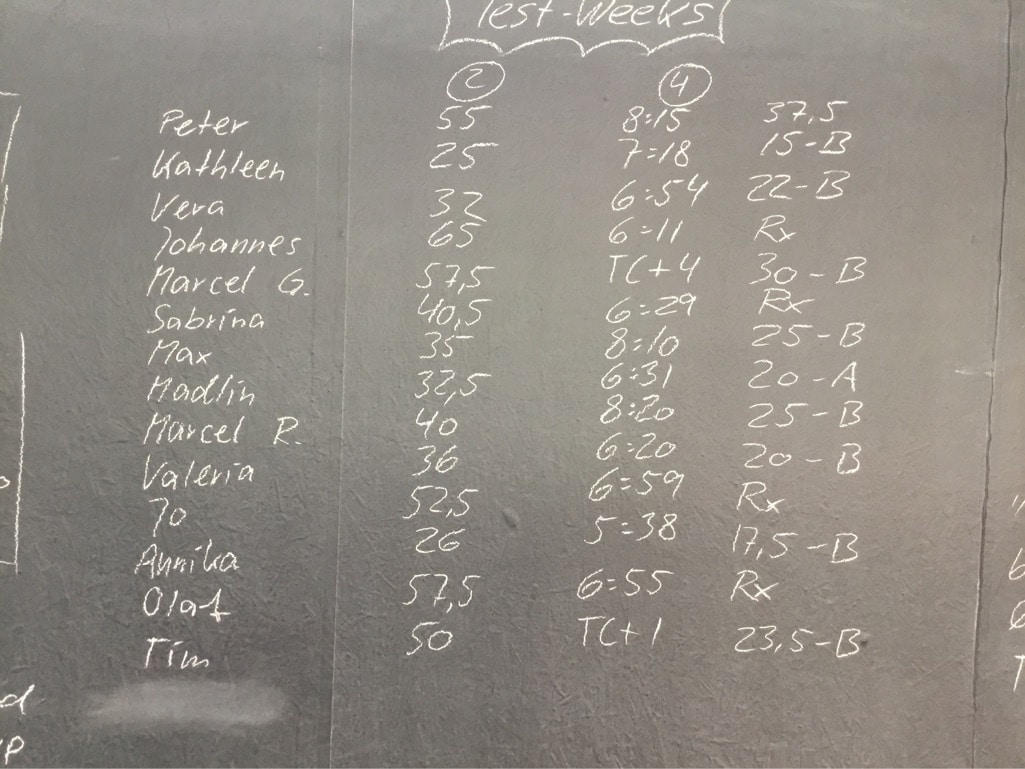 Test-Weeks
2 4
Peter 55 8:15 37,5
Kathleen 25 7:18 15-B
Vera 32 6:54 22-B
Johannes 65 6:11 Rx
Marcel G. 57,5 TC+4 30-B
Sabrina 40,5 6:29 Rx
Max 35 8:10 25-B
Madlin 32,5 6:31 20-A
Marcel R. 40 8:20 25-B
Valeria 36 6:20 20-B
Jo 52,5 6:59 Rx
Annika 26 5:38 17,5-B
Olaf 57,5 6:55 Rx
Tim 50 TC+1 23,5-B